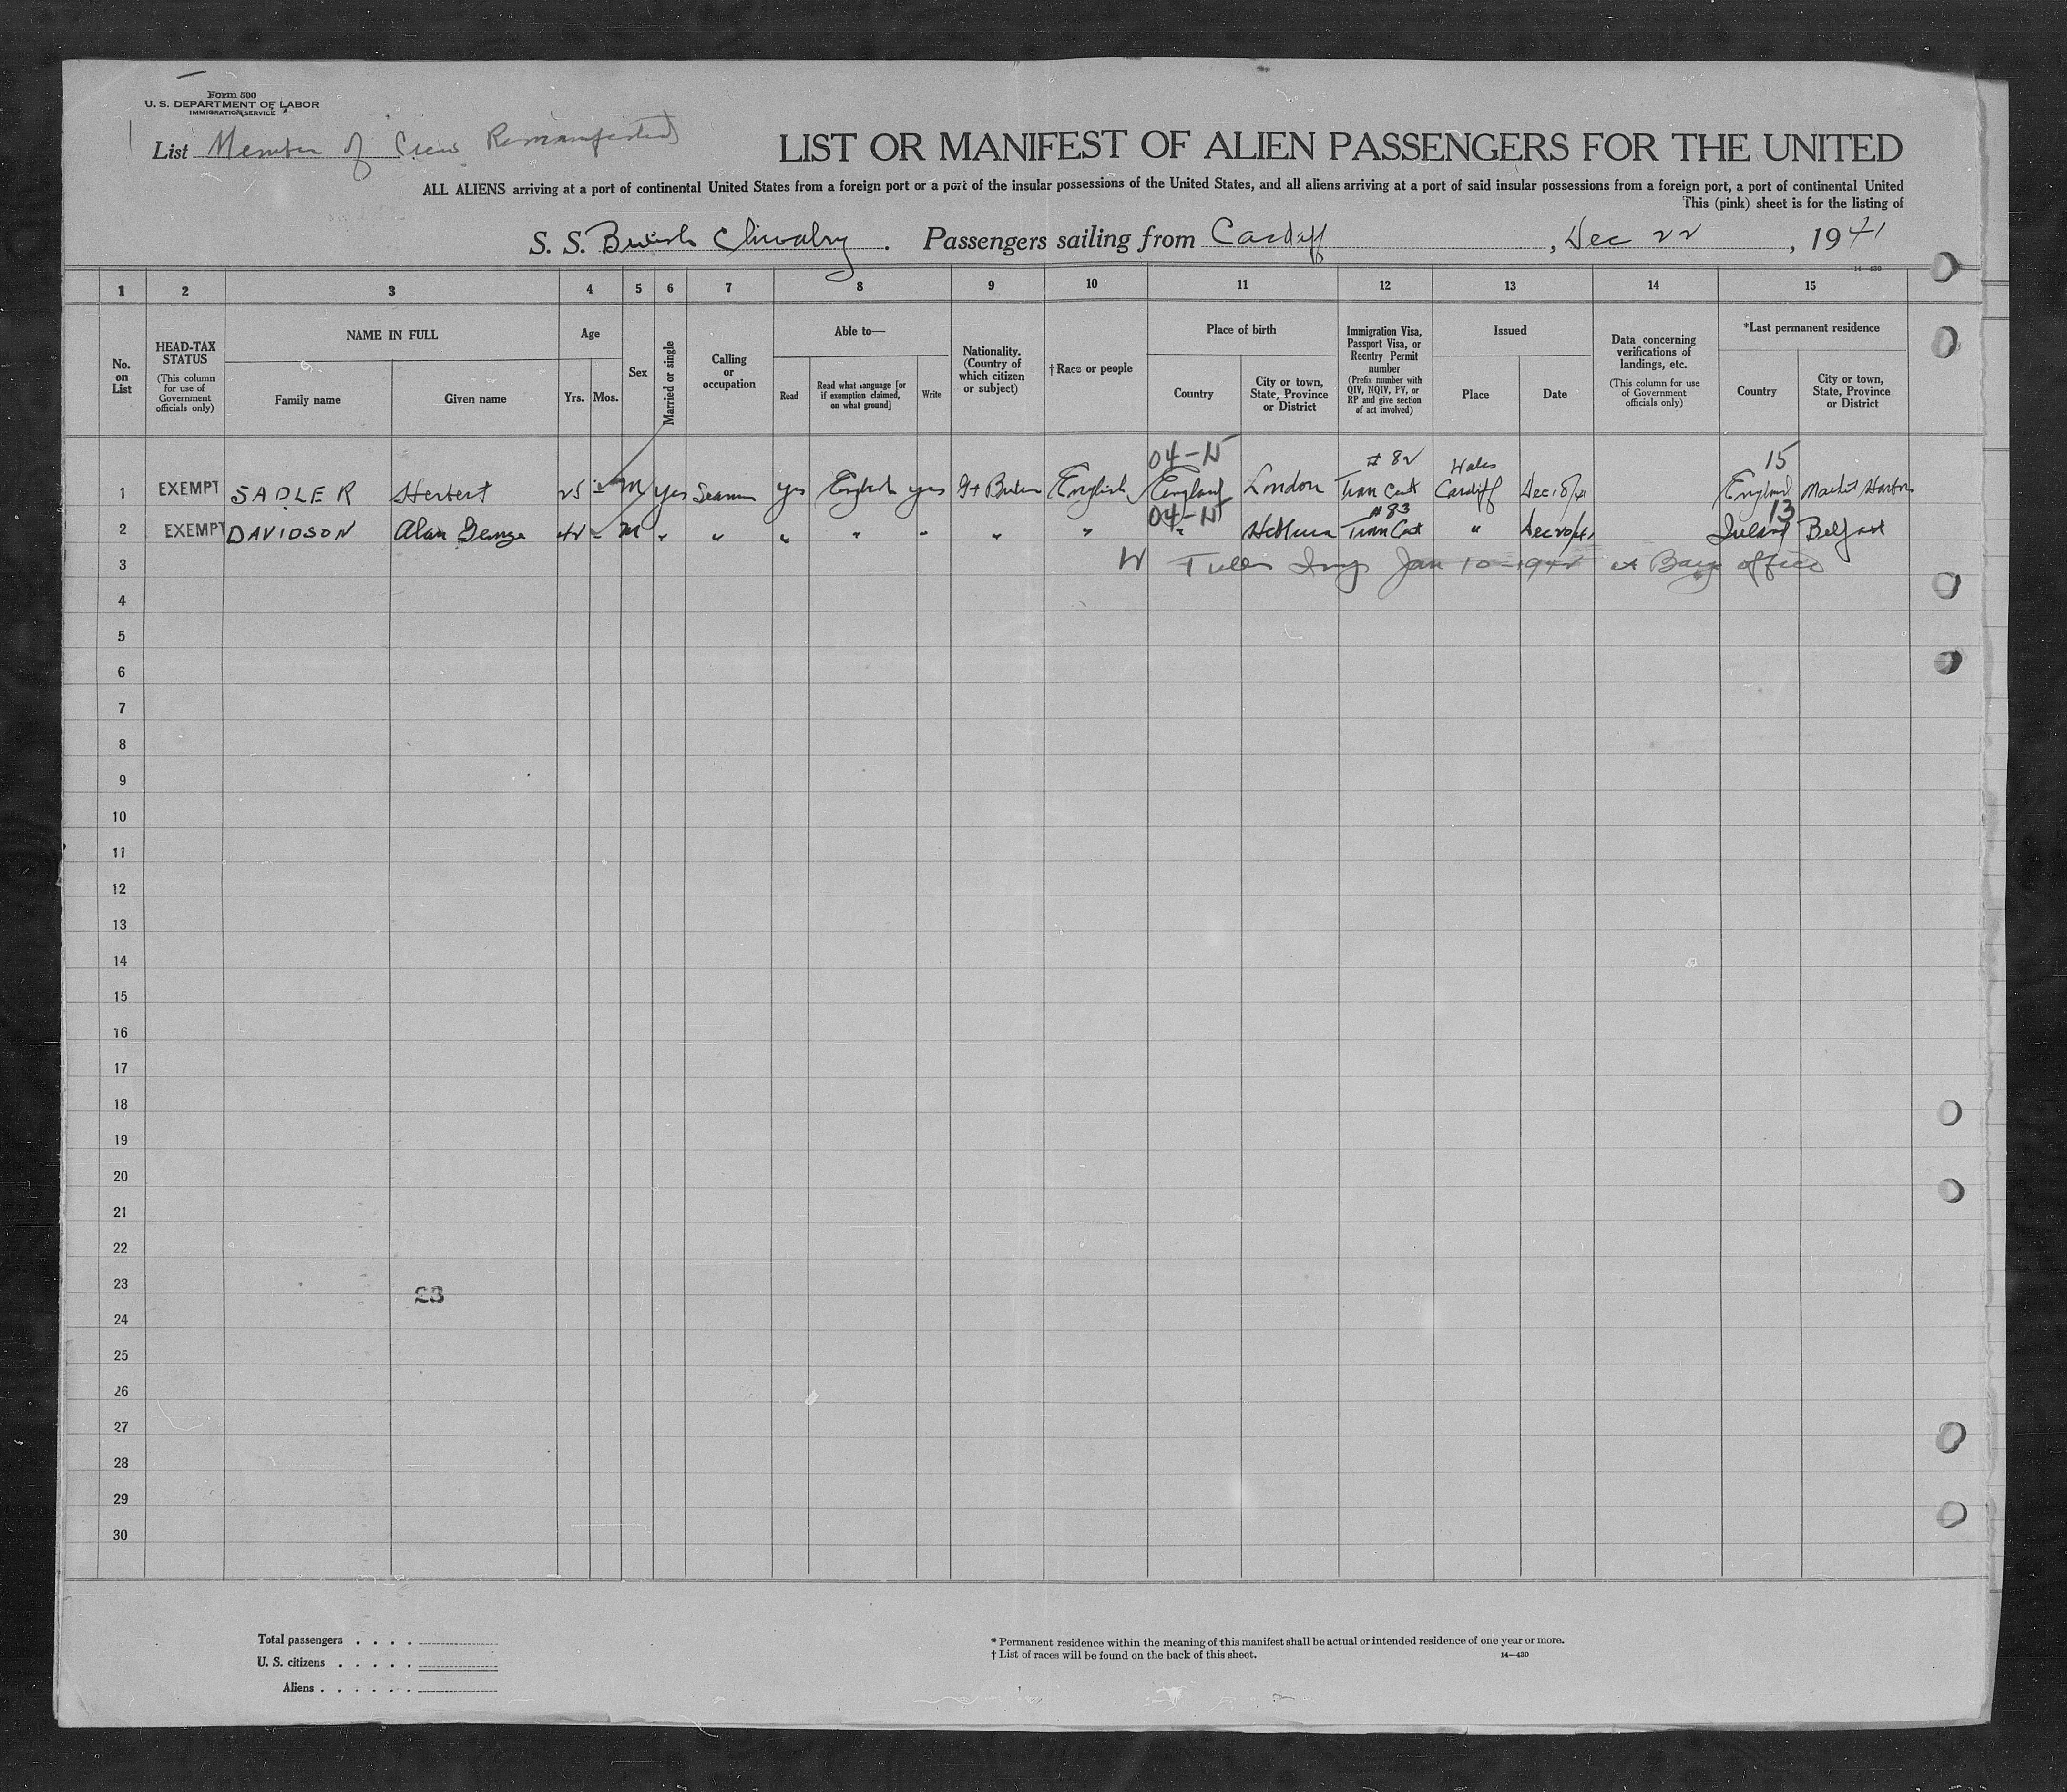 Form 500
U. S. DEPARTMENT OF LABOR
IMMIGRATION SERVICE
List Member of Crew Remanifested
LIST OR MANIFEST OF ALIEN PASSENGERS FOR THE UNITED
ALL ALIENS arriving at a port of continental United States from a foreign port or a port of the insular possessions of the United States, and all aliens arriving at a port of said insular possessions from a foreign port, a port of continental United
This (pink) sheet is for the listing of
S. S. British Chivalry . Passengers sailing from Cardiff , Dec 22 , 1941
14—430
1 2 3 4 5 6 7 8 9 10 11 12 13 14 15
No. on List
HEAD-TAX STATUS
(This column for use of Government officials only)
NAME IN FULL
Family name
Given name
Age
Yrs. Mos.
Sex
Married or single
Calling or occupation
Able to—
Read
Read what language [or if exemption claimed, on what ground]
Write
Nationality. (Country of which citizen or subject)
† Race or people
Place of birth
Country
City or town, State, Province or District
Immigration Visa, Passport Visa, or Reentry Permit number
(Prefix number with QIV, NQIV, PV, or RP and give section of act involved)
Issued
Place
Date
Data concerning verifications of landings, etc.
(This column for use of Government officials only)
*Last permanent residence
Country
City or town, State, Province or District
04-N # 82 Wales 15
1 EXEMPT SADLER Herbert 25 M yes Seaman yes English yes Gt Britain English England London Tran Cert Cardiff Dec 18/41 England Market Harbor
04-N #83 13
2 EXEMPT DAVIDSON Alan George 42 M " " " " " " " " Tran Cert " Dec 20/41 Ireland Belfast
3 Jan 10 1942 at Barge office
4
5
6
7
8
9
10
11
12
13
14
15
16
17
18
19
20
21
22
23
£3
24
25
26
27
28
29
30
Total passengers . . . .
U. S. citizens . . . . .
Aliens . . . . . .
* Permanent residence within the meaning of this manifest shall be actual or intended residence of one year or more.
† List of races will be found on the back of this sheet.
14—430